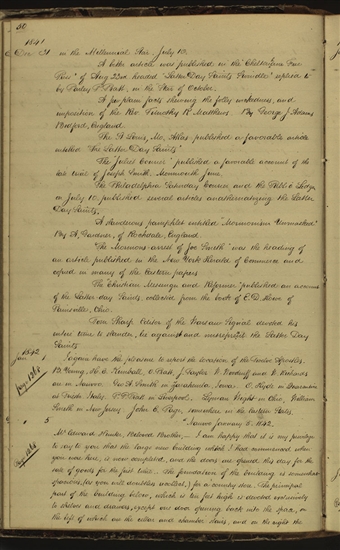 50
1841
Dec 31 in the Millennial Star, July 10.
A bitter article was published in the Cheltenham Free
Press of Aug 23rd headed "Latter Day Saints Swindle" replied to
by Parley P. Pratt, in the Star of October.
A few plain facts shewing the folly wickedness, and
imposition of the Rev. Timothy R. Matthews. By George J. Adams
Bedford, England.
The St Louis, Mo, Atlas published a favorable article
entitled The Latter Day Saints
The "Joliet Courier" published a favorable account of the
late trial of Joseph Smith. Monmouth June.
The Philadelphia Saturday Courier and the Public Ledger
in July 10. published several articles anathematizing the Latter
Day Saints.
A slanderous pamphlet entitled Mormonism Unmasked
By R. Gardner, of Rochdale, England.
The Mormons arrest of Joe Smith was the heading of
an article published in the New York Herald of Commerce and
copied in many of the Eastern papers
The Christian Messenger and Reformer published an account
of the Latter day Saints, collected from the book of E. D. Howe of
Painesville, Ohio.
Tom Sharp Editor of the Warsaw Signal devoted his
entire time to slander, lie against and misrepresent the Latter Day
Saints
1842
Jan 1 I again have the pleasure to record the location of the Twelve Apostles.
B. Young, H. C. Kimball, O. Pratt, J. Taylor W. Woodruff and W. Richards
are in Nauvoo. Geo A. Smith in Zarahemla, Iowa. O. Hyde in
P. P. Pratt in Liverpool. Lyman Wight in Ohio, William
Smith in New Jersey. John E. Page, somewhere in the Eastern States.
5 Nauvoo January 5. 1842.
Mr Edward Hunter, Beloved Brother,- I am happy that it is my privilege
to say to you that the large new building which I had commenced when
you was here, is now completed, and the doors are opened this day for the
sale of goods for the first time. The foundation of the building is somewhat
spacious, (as you will doubtless recollect,) for a country store. The principal
part of the building below, which is ten feet high is devoted exclusively
to shelves and drawers, except one door opening back into the space, on
the left of which are the cellar and chamber stairs, and on the right the